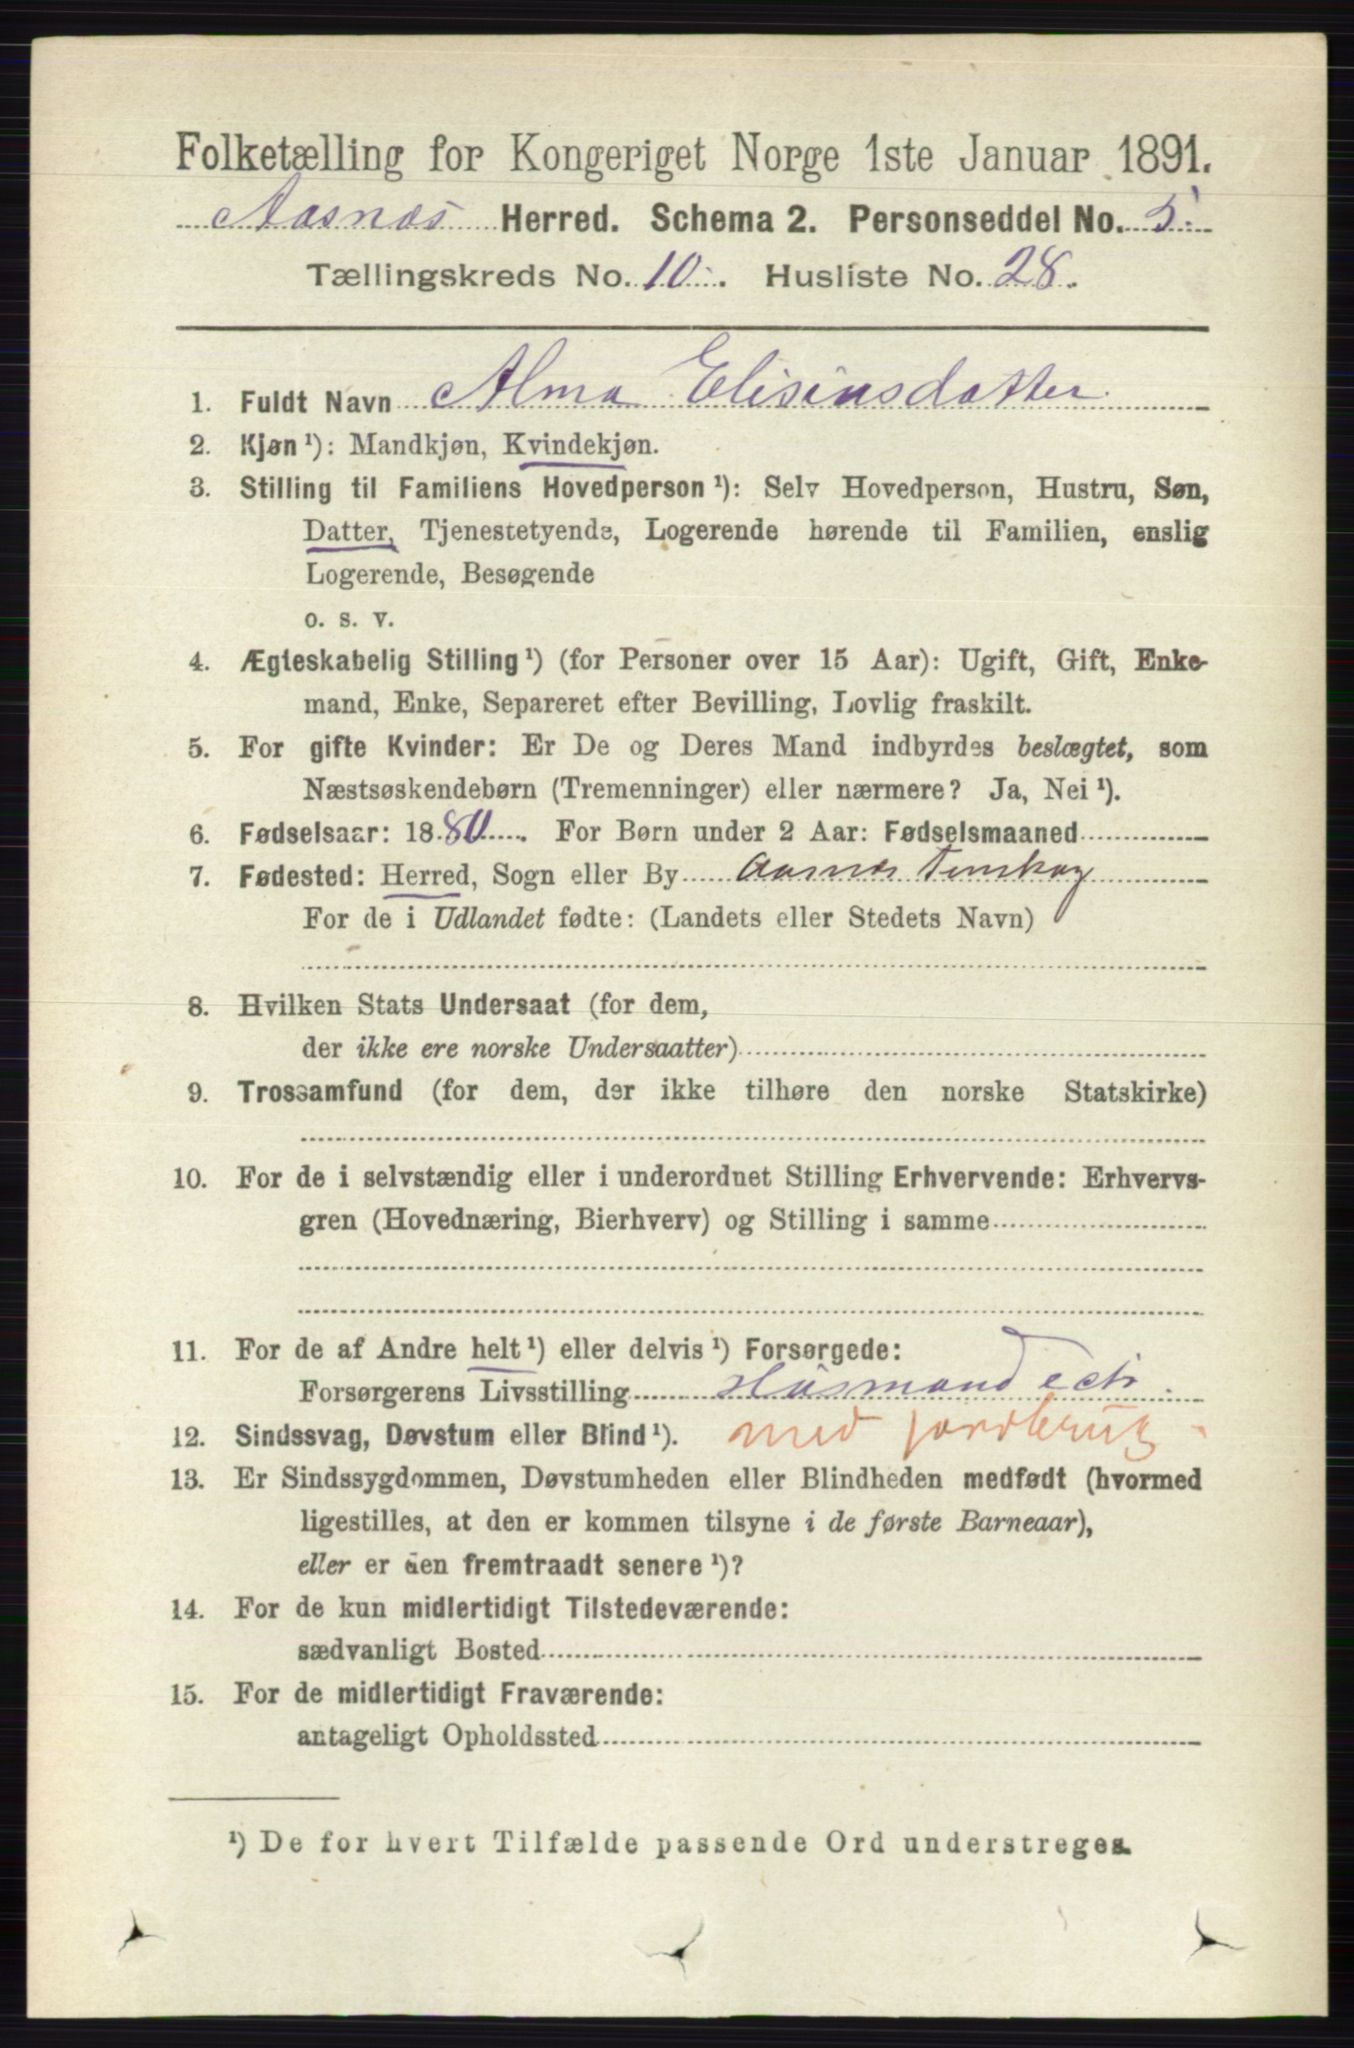 Folketælling for Kongeriget Norge 1ste Januar 1891.
Aasnæs Herred. Schema 2. Personseddel No. 5.
Tællingskreds No. 10. Husliste No. 28.
1. Fuldt Navn Alma Elisiusdatter.
2. Kjøn ¹): Mandkjøn, Kvindekjøn.
3. Stilling til Familiens Hovedperson ¹): Selv Hovedperson, Hustru, Søn,
Datter, Tjenestetyende, Logerende hørende til Familien, enslig
Logerende, Besøgende
o. s. v.
4. Ægteskabelig Stilling ¹) (for Personer over 15 Aar): Ugift, Gift, Enke-
mand, Enke, Separeret efter Bevilling, Lovlig fraskilt.
5. For gifte Kvinder: Er De og Deres Mand indbyrdes beslægtet, som
Næstsøskendebørn (Tremenninger) eller nærmere? Ja, Nei ¹).
6. Fødselsaar: 1880. For Børn under 2 Aar: Fødselsmaaned
7. Fødested: Herred, Sogn eller By Aasnæs Finskog
For de i Udlandet fødte: (Landets eller Stedets Navn)
8. Hvilken Stats Undersaat (for dem,
der ikke ere norske Undersaatter)
9. Trossamfund (for dem, der ikke tilhøre den norske Statskirke)
10. For de i selvstændig eller i underordnet Stilling Erhvervende: Erhvervs-
gren (Hovednæring, Bierhverv) og Stilling i samme
11. For de af Andre helt ¹) eller delvis ¹) Forsørgede:
Forsørgerens Livsstilling Husmand
12. Sindssvag, Døvstum eller Blind ¹). med jordbrug
13. Er Sindssygdommen, Døvstumheden eller Blindheden medfødt (hvormed
ligestilles, at den er kommen tilsyne i de første Barneaar),
eller er den fremtraadt senere ¹)?
14. For de kun midlertidigt Tilstedeværende:
sædvanligt Bosted
15. For de midlertidigt Fraværende:
antageligt Opholdssted
¹) De for hvert Tilfælde passende Ord understreges.